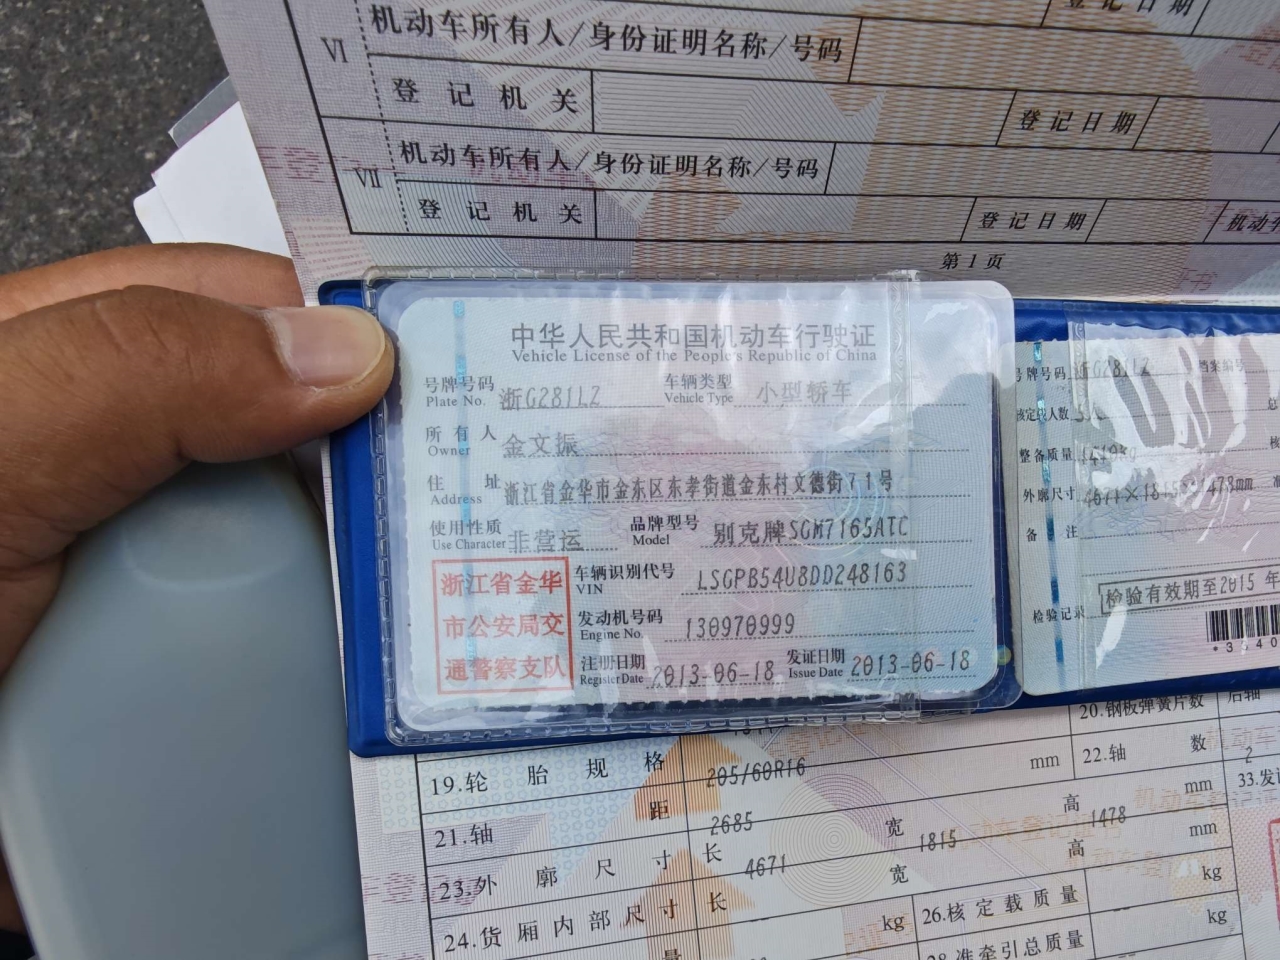 登记日期
VI
机动车所有人/身份证明名称/号码
登记机关
登记日期
VII
机动车所有人/身份证明名称/号码
登记机关
登记日期
第1页
中华人民共和国机动车行驶证
Vehicle License of the People's Republic of China
号牌号码 浙G281LZ 车辆类型 小型轿车
Plate No. Vehicle Type
所有人 金文振
Owner
住址 浙江省金华市金东区东孝街道金东村文德街71号
Address
使用性质 非营运 品牌型号 别克牌SGM7165ATC
Use Character Model
浙江省金华
市公安局交
通警察支队
车辆识别代号 LSGPB54U8DD248163
VIN
发动机号码 130970999
Engine No.
注册日期 2013-06-18 发证日期 2013-06-18
Register Date Issue Date
号牌号码 浙G281LZ 档案编号
核定载人数
整备质量
外廓尺寸
备注
检验记录
检验有效期至2015年
19.轮胎规格 205/60R16 mm
20.钢板弹簧片数 后轴
21.轴距 2685 mm
22.轴数 2
23.外廓尺寸 长 4671 宽 1815 高 1478 mm
24.货厢内部尺寸 长 宽 高
kg
26.核定载质量 kg
28.准牵引总质量 kg